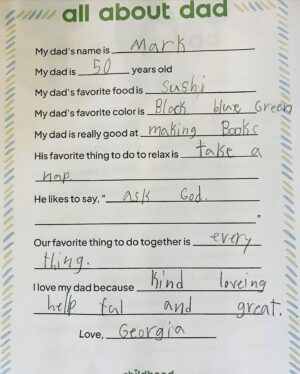 all about dad
My dad's name is Mark
My dad is 50 years old
My dad's favorite food is Sushi
My dad's favorite color is Black blue Green
My dad is really good at making Books
His favorite thing to do to relax is take a
nap.
He likes to say, "ask God.
"
Our favorite thing to do together is every
thing.
I love my dad because kind loveing
help ful and great.
Love, Georgia
childhood